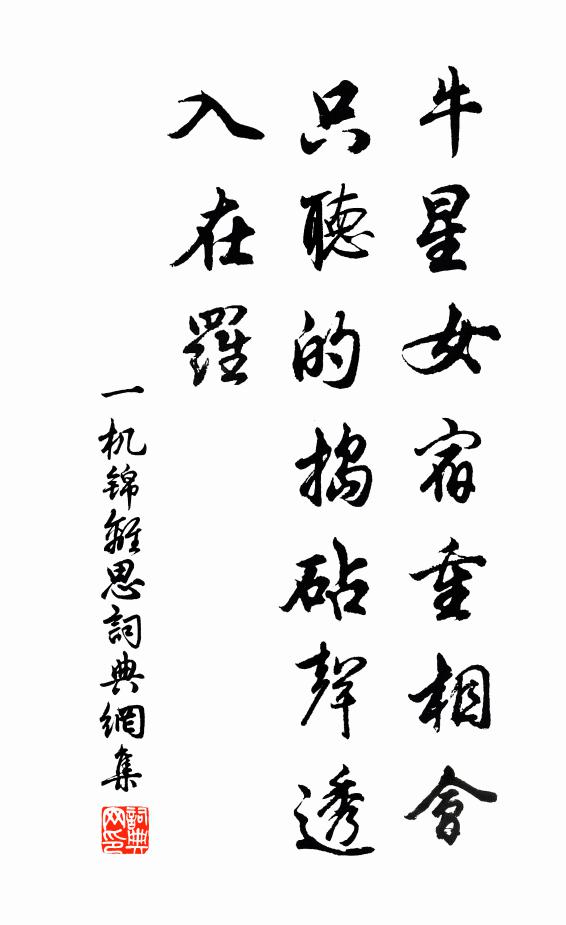 牛星女宿重相會
只聽的搗砧聲透
入在羅
一机錦離思詞典網集
詞典
网印